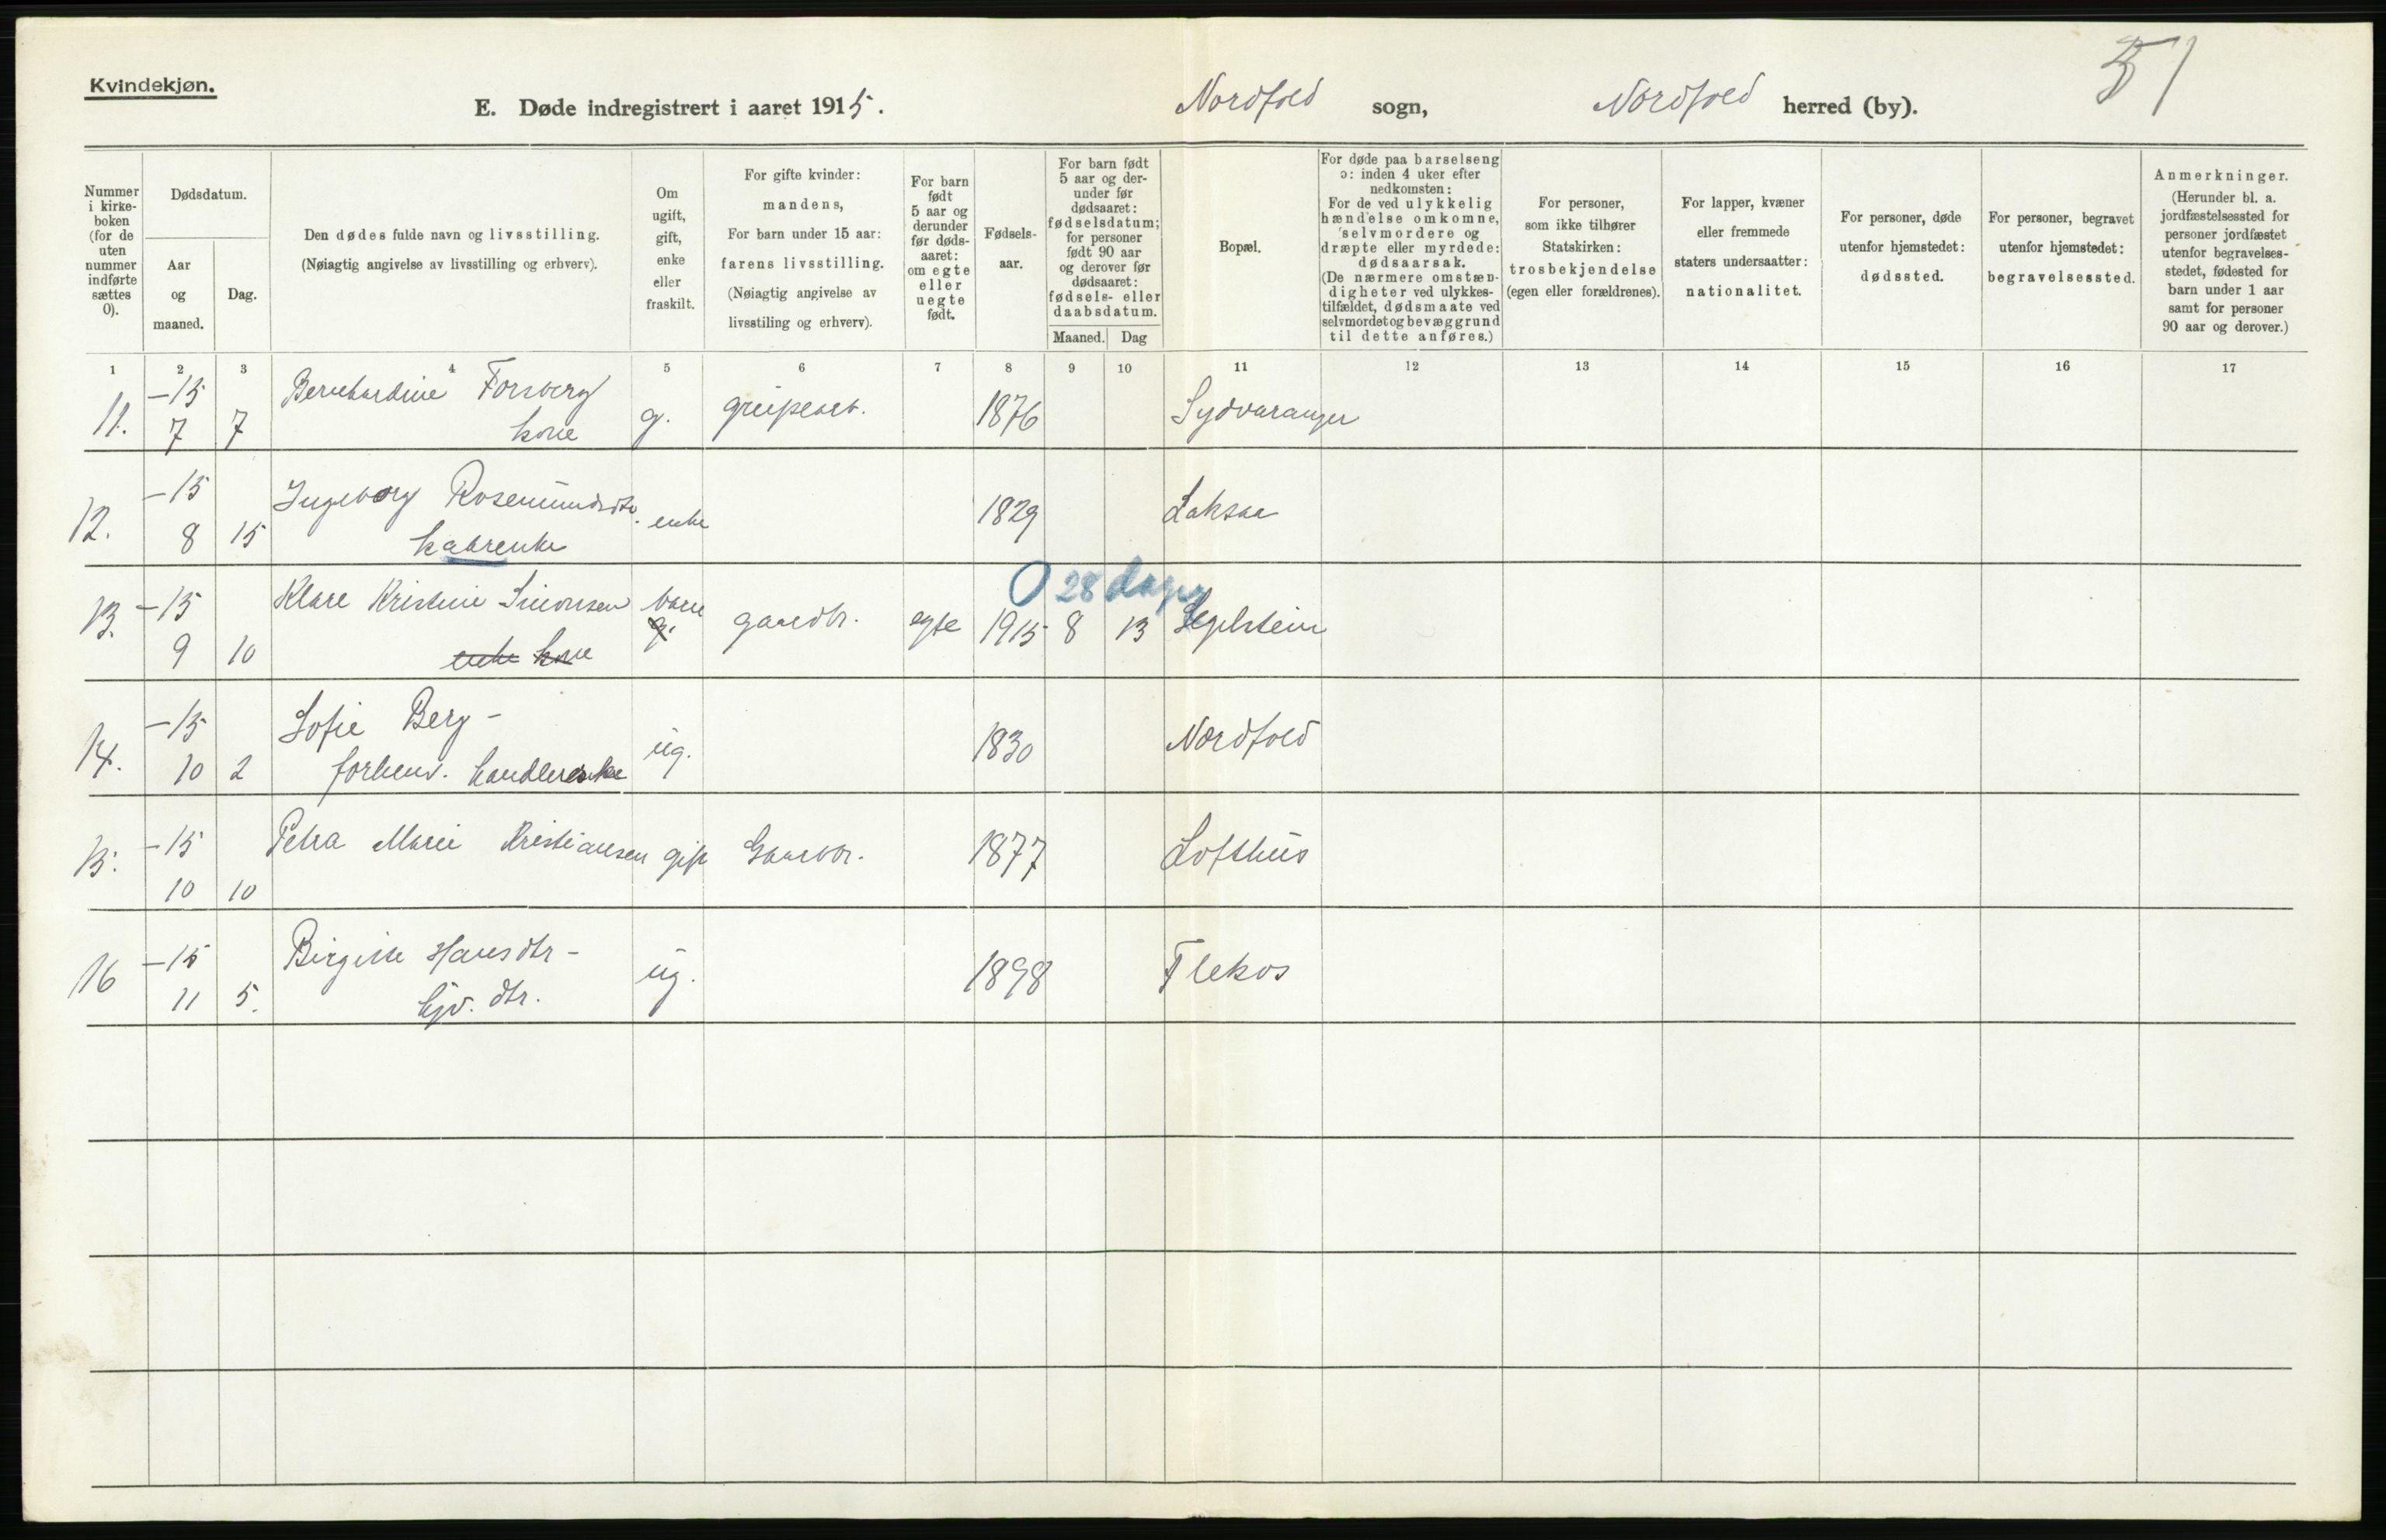 Kvindekjøn.
51
E. Døde indregistrert i aaret 1915. Nordfold sogn, Nordfold herred (by).
Nummer i kirkeboken (for de uten nummer indførte sættes 0).
Dødsdatum.
Aar og maaned.
Dag.
Den dødes fulde navn og livsstilling.
(Nøiagtig angivelse av livsstilling og erhverv).
Om ugift, gift, enke eller fraskilt.
For gifte kvinder: mandens,
For barn under 15 aar: farens livsstilling.
(Nøiagtig angivelse av livsstiling og erhverv).
For barn født 5 aar og derunder før dødsaaret: om egte eller uegte født.
Fødselsaar.
For barn født 5 aar og derunder før dødsaaret: fødselsdatum; for personer født 90 aar og derover før dødsaaret: fødsels- eller daabsdatum.
Maaned. Dag
Bopæl.
For døde paa barselseng ɔ: inden 4 uker efter nedkomsten:
For de ved ulykkelig hændelse omkomne, selvmordere og dræpte eller myrdede: dødsaarsak.
(De nærmere omstændigheter ved ulykkestilfældet, dødsmaate ved selvmordet og bevæggrund til dette anføres.)
For personer, som ikke tilhører Statskirken: trosbekjendelse (egen eller forældrenes).
For lapper, kvæner eller fremmede staters undersaatter: nationalitet.
For personer, døde utenfor hjemstedet: dødssted.
For personer, begravet utenfor hjemstedet: begravelsessted.
Anmerkninger.
(Herunder bl. a. jordfæstelsessted for personer jordfæstet utenfor begravelsesstedet, fødested for barn under 1 aar samt for personer 90 aar og derover.)
1 2 3 4 5 6 7 8 9 10 11 12 13 14 15 16 17
11. –15 7 7 Bernhardine Forsberg kone g. 1876 Sydvaranger
12. –15 8 15 Ingeborg Rosemundsdtr. kaarenke enke 1829 Laksaa
13. –15 9 10 Klare Kristine Simonsen enke kone barn g. gaardbr. egte 1915 8 13 Seglstein
0 28 dager
14. –15 10 2 Sofie Berg – forhenv. handlerske ug. 1830 Nordfold
15. –15 10 10 Petra Marie Kristiansen gift Gaardbr. 1877 Lofthus
16 –15 11 5. Birgitte Hansdtr – gjv. dtr. ug. 1898 Flekos